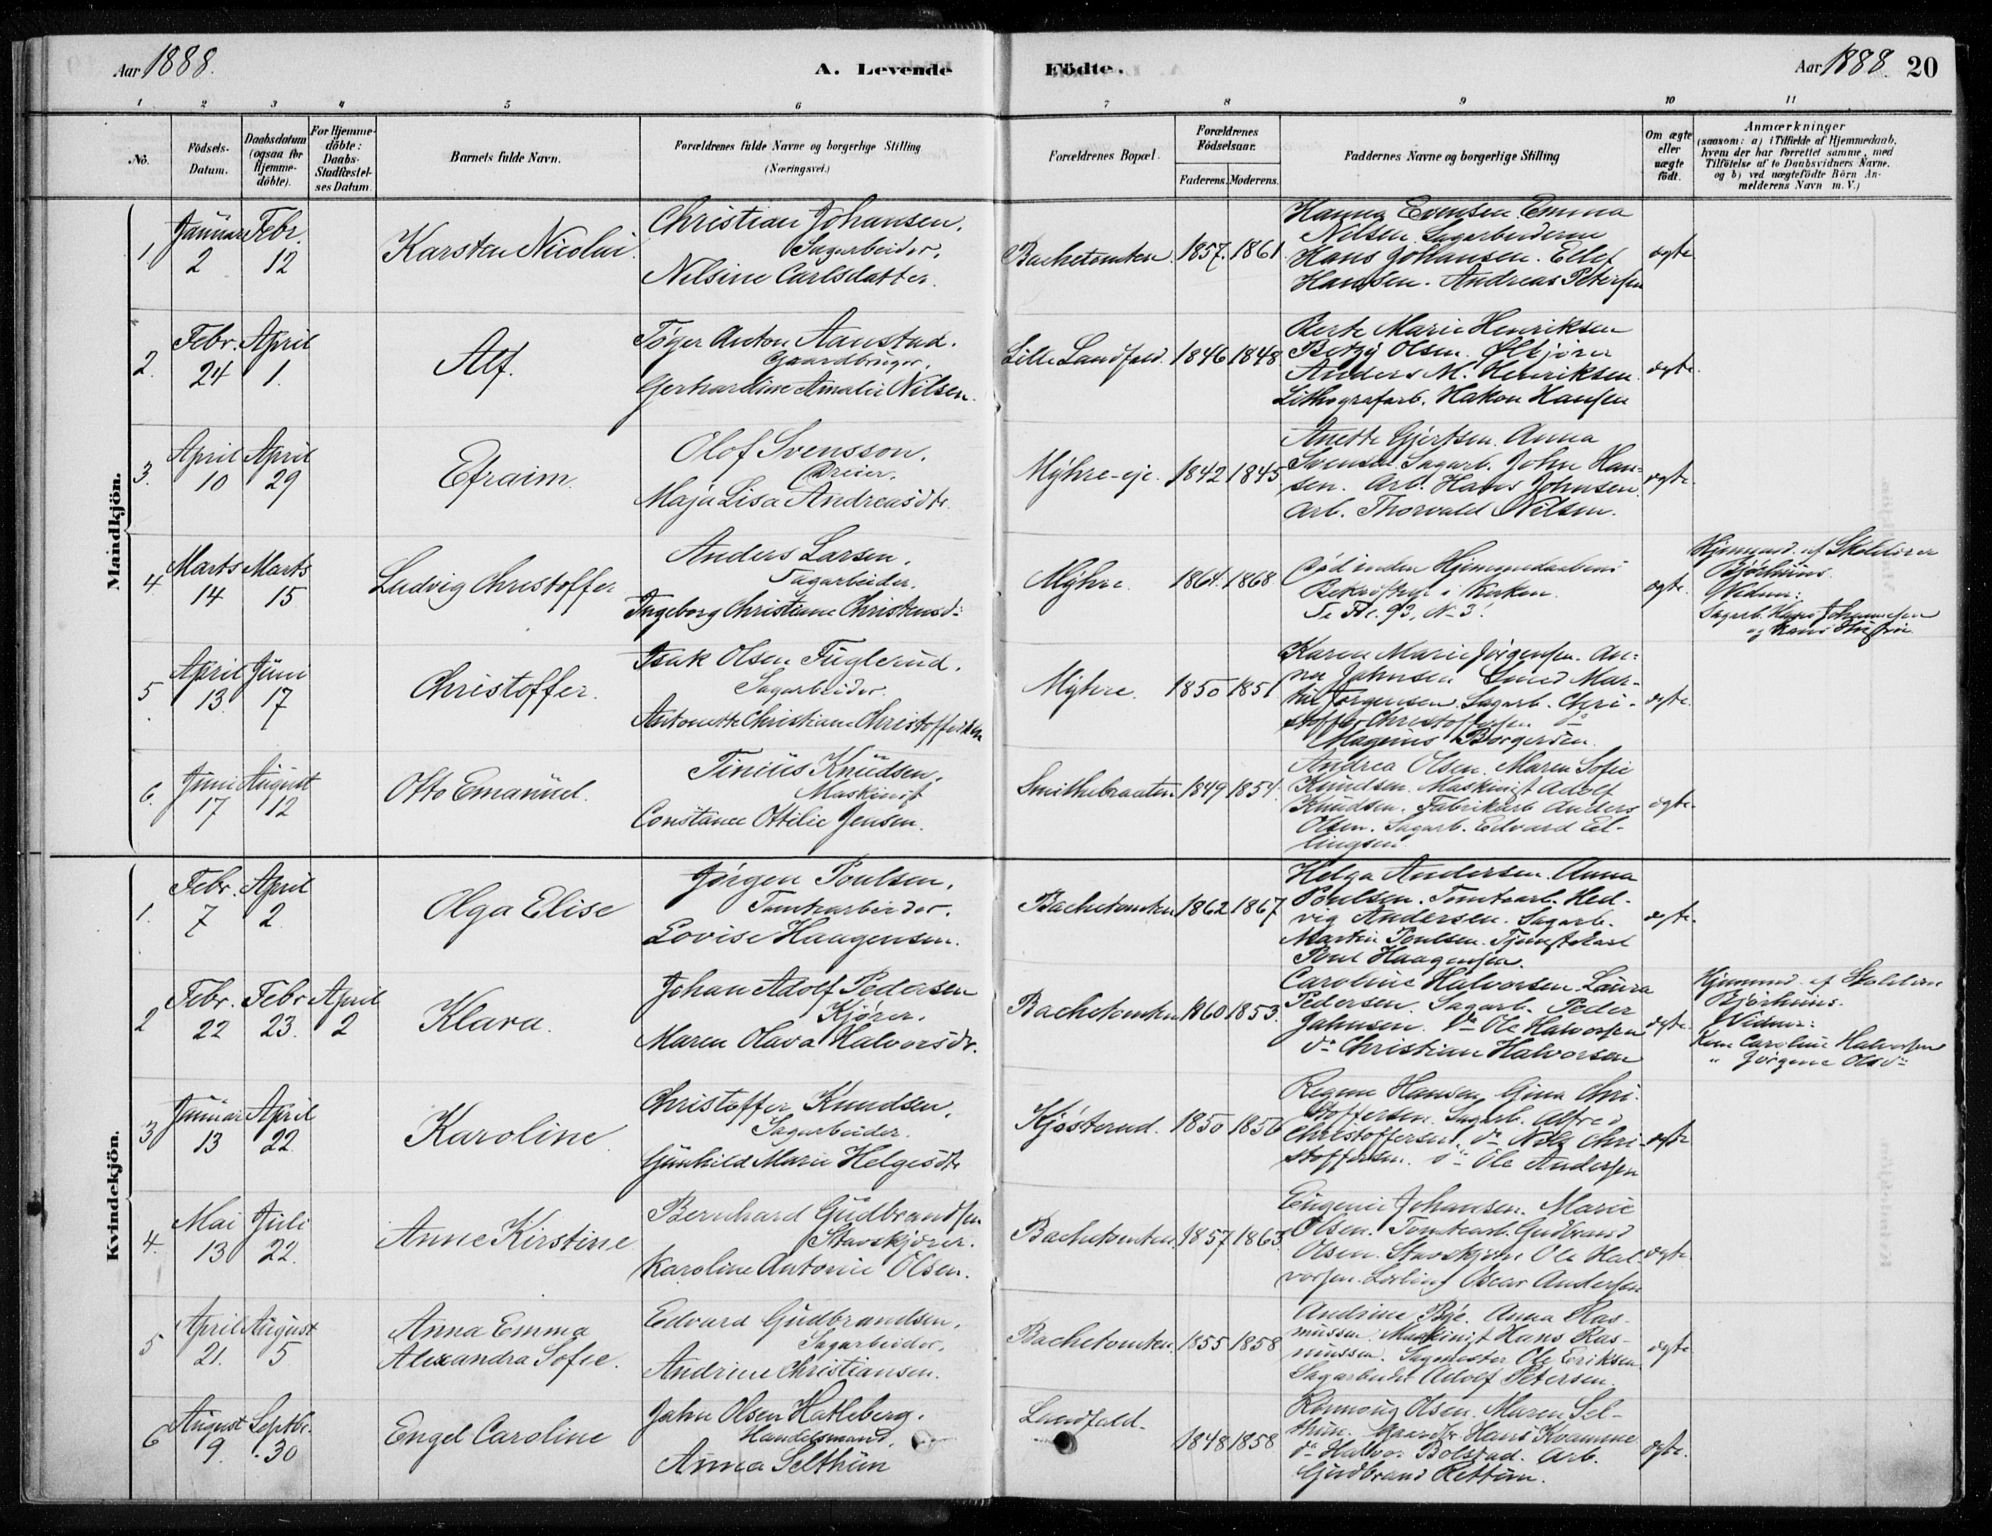 Aar 1888.
A. Levende
Födte.
Aar 1888. 20
1 2 3 4 5 6 7 8 9 10 11
No.
Födsels-Datum.
Daabsdatum (ogsaa for Hjemme-döbte).
For Hjemme-döbte: Daabs-Stadfæstel-ses Datum.
Barnets fulde Navn.
Forældrenes fulde Navne og borgerlige Stilling
(Næringsvei.)
Forældrenes Bopæl.
Forældrenes Födselsaar.
Faderens. Moderens.
Faddernes Navne og borgerlige Stilling
Om ægte eller uægte födt.
Anmærkninger
(saasom: a) i Tilfælde af Hjemmedaab,
hvem der har forrettet samme, med
Tilföielse af to Daabsvidners Navne.
og b) ved uægtefödte Börn An-
melderens Navn m. V.)
Mandkjön.
1 Januar 2 Febr. 12
Karsten Nicolai.
Christian Johansen.
Sagarbeider.
Nilsine Carlsdatter.
Bachetomten. 1857. 1861.
Hanna Evensen. Emma
Nilsen. Sagarbeiderne
Hans Johansen. Ellef
Hansen. Andreas Petersen
ægte
2. Febr. 24 April 1.
Alf.
Töger Anton Aanstad.
Gaardbruger.
Gerhardine Amalie Nilsen.
Lille Landfald. 1846 1848
Berte Marie Henriksen
Betzy Olsen. Ölkjörer
Anders M. Henriksen.
Lithografarb. Hakon Hansen
ægte.
3. April 10 April 29
Efraim.
Olof Svensson.
Dreier.
Maja Lisa Andreasdtr.
Myhre-eje. 1842 1845
Anette Gjertsen. Anna
Svensen. Sagarb. John Han-
sen. Arb. Hans Johnsen.
Arb. Thorvald Nilsen.
ægte.
4 Marts 14 Marts 15
Ludvig Christoffer
Anders Larsen.
Sagarbeider.
Ingeborg Christiane Christensd:
Myhre. 1864. 1868
Död inden Hjemmedaabens
Bekræftelse i Kirken.
Se Fol. 93, N. 3.
ægte.
Hjemmed. af Skolelærer
Björhuus.
Vidner:
Sagarb. Hans Johannesen
og hans Hustru
5. April 13. Juni 17
Christoffer.
Isak Olsen Fuglerud.
Sagarbeider.
Antonette Christiane Christoffersen
Myhre. 1850 1851
Karen Marie Jörgensen. An-
na Johnsen. Smed Mar-
tin Jörgensen. Sagarb. Chri-
stoffer Christoffersen do
Magnus Borgersen.
ægte.
6. Juni 17 August 12
Otto Emanuel.
Tinius Knudsen.
Maskinist
Constance Ottilie Jensen.
Smithebraaten 1849 1854.
Andrea Olsen. Maren Sofie
Knudsen. Maskinist Adolf
Knudsen. Fabrikarb. Anders
Olsen. Sagarb. Edvard El-
lingsen
ægte.
Kvindekjön.
1. Febr. 7 April 2.
Olga Elise
Jörgen Poulsen.
Tomtearbeider.
Lovise Haagensen.
Bachetomten 1862 1867
Helga Andersen. Anna
Poulsen. Tomtearb. Hed-
vig Andersen. Sagarb.
Martin Poulsen. Tjenestekarl
Poul Haagensen.
ægte.
2 Febr. 22 Febr 23. April 2
Klara.
Johan Adolf Pedersen
Kjörer.
Maren Olava Halvorsdr.
Bachetomten 1860 1853.
Caroline Halvorsen. Laura
Pedersen. Sagarb. Peder
Johnsen. do Ole Halvorsen
do Christian Halvorsen
ægte.
Hjemmed. af Skolelærer
Björhuus.
Vidner:
Kone Caroline Halvorsen
" Jörgine Olsdr
3 Januar 13 April 22.
Karoline
Christoffer Knudsen.
Sagarbeider.
Gunhild Marie Helgesdtr
Kjösterud. 1850 1850
Regine Hansen. Gina Chri-
stoffersen. Sagarb. Alfred
Christoffersen. do Nils Chri-
stoffersen. do Ole Andersen
ægte
4. Mai 13 Juli 22.
Anne Kirstine
Bernhard Gudbrandsen
Stavskjörer.
Karoline Antonie Olsen.
Bachetomten. 1857 1863
Eugenie Johansen. Marie
Olsen. Tomtearb. Gudbrand
Olsen. Stavskjörer Ole Hal-
vorsen. Lærling Oscar Andersen
ægte
5 April 21. August 5
Anna Emma
Alexandra Sofie.
Edvard Gudbrandsen.
Sagarbeider.
Andrine Christiansen.
Bachetomten. 1855 1858
Andrine Bye. Anna Ras-
mussen. Maskinist Hans Ras-
mussen. Sagmester Ole Eriksen.
Sagarbeider Adolf Petersen.
ægte
6 August 9. Septbr. 30
Engel Caroline
John Olsen Hatleberg.
Handelsmand.
Anna Selthun
Landfald. 1848 1858
Rannoug Olsen. Maren Sel-
thun. Gaardbr Hans Kvamme
do Halvor Bolstad. Arb.
Gudbrand Rettum.
ægte.